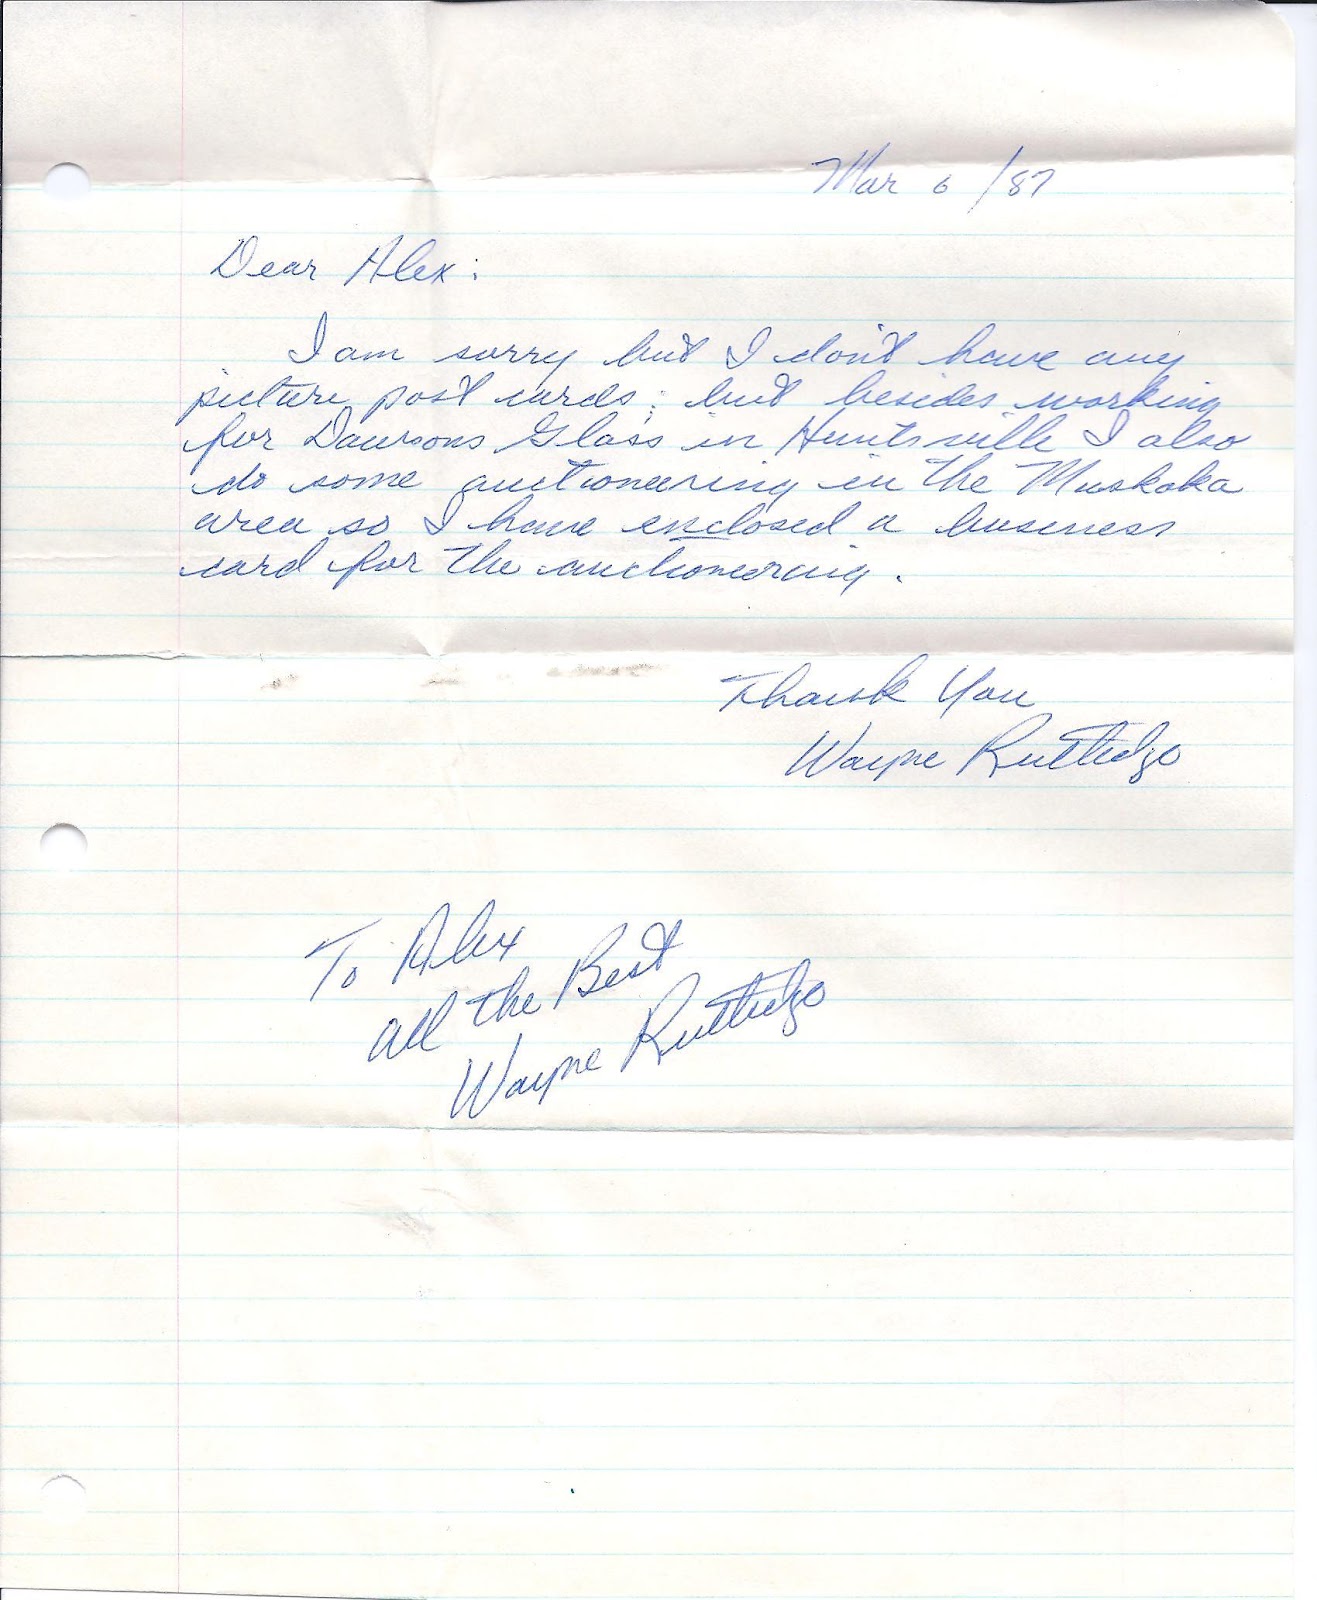 Mar 6 /87
Dear Alex:
I am sorry but I don't have any
picture post cards; but besides working
for Dawsons Glass in Huntsville I also
do some auctioneering in the Muskoka
area so I have enclosed a business
card for the auctioneering.
Thank You
Wayne Rutledge
To Alex
all the Best
Wayne Rutledge